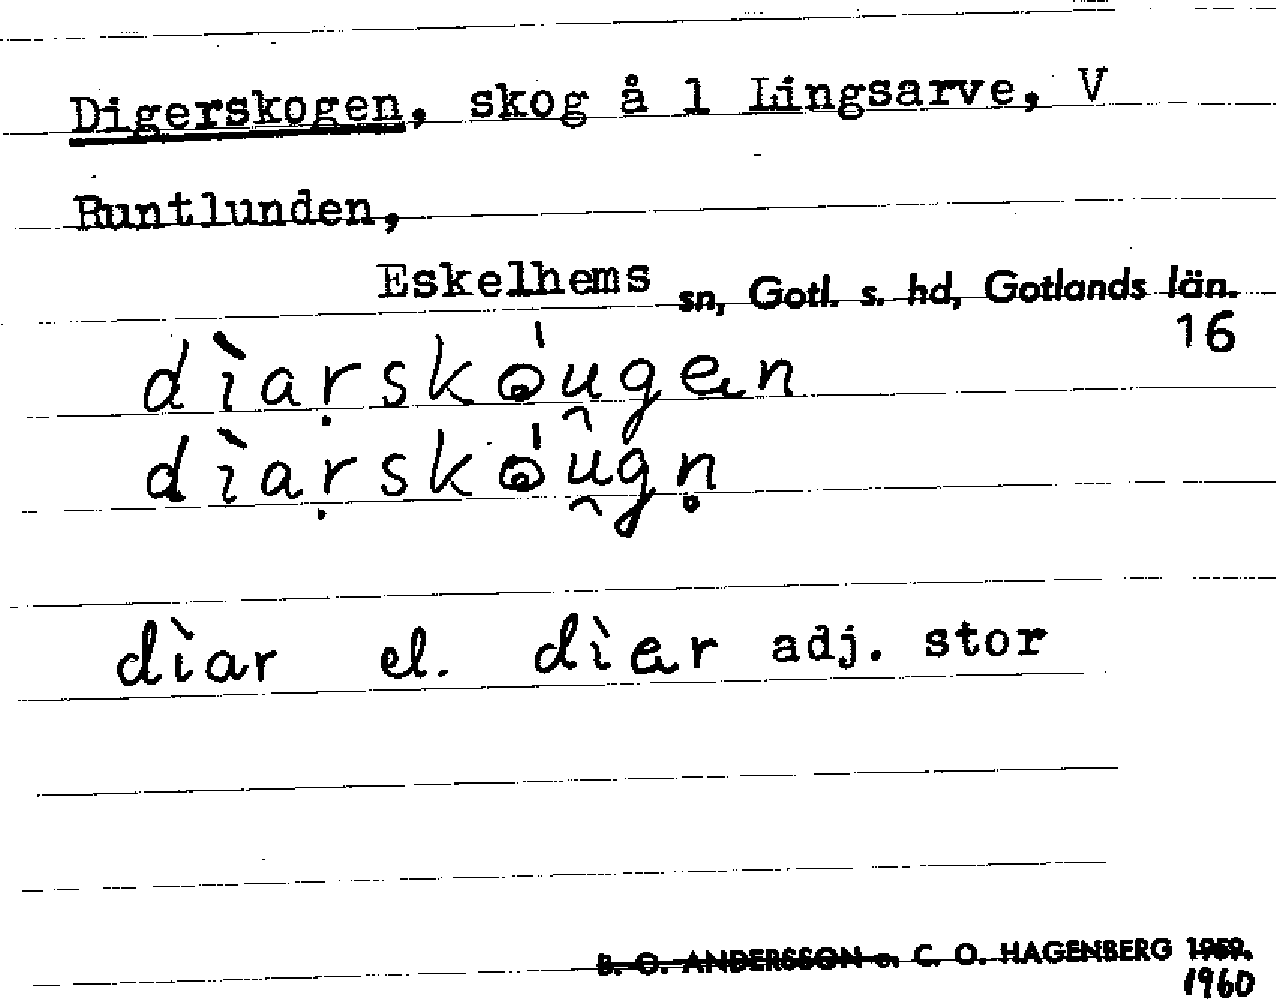 Digerskogen, skog å 1 Lingsarve, V
Runtlunden,
Eskelhems sn, Gotl. s. hd, Gotlands län.
16
dìaṛskɷ́u̯gen
dìaṛskɷ́u̯gn̥
dìar el. dìer adj. stor
B. O. ANDERSSON o. C. O. HAGENBERG 1959.
1960